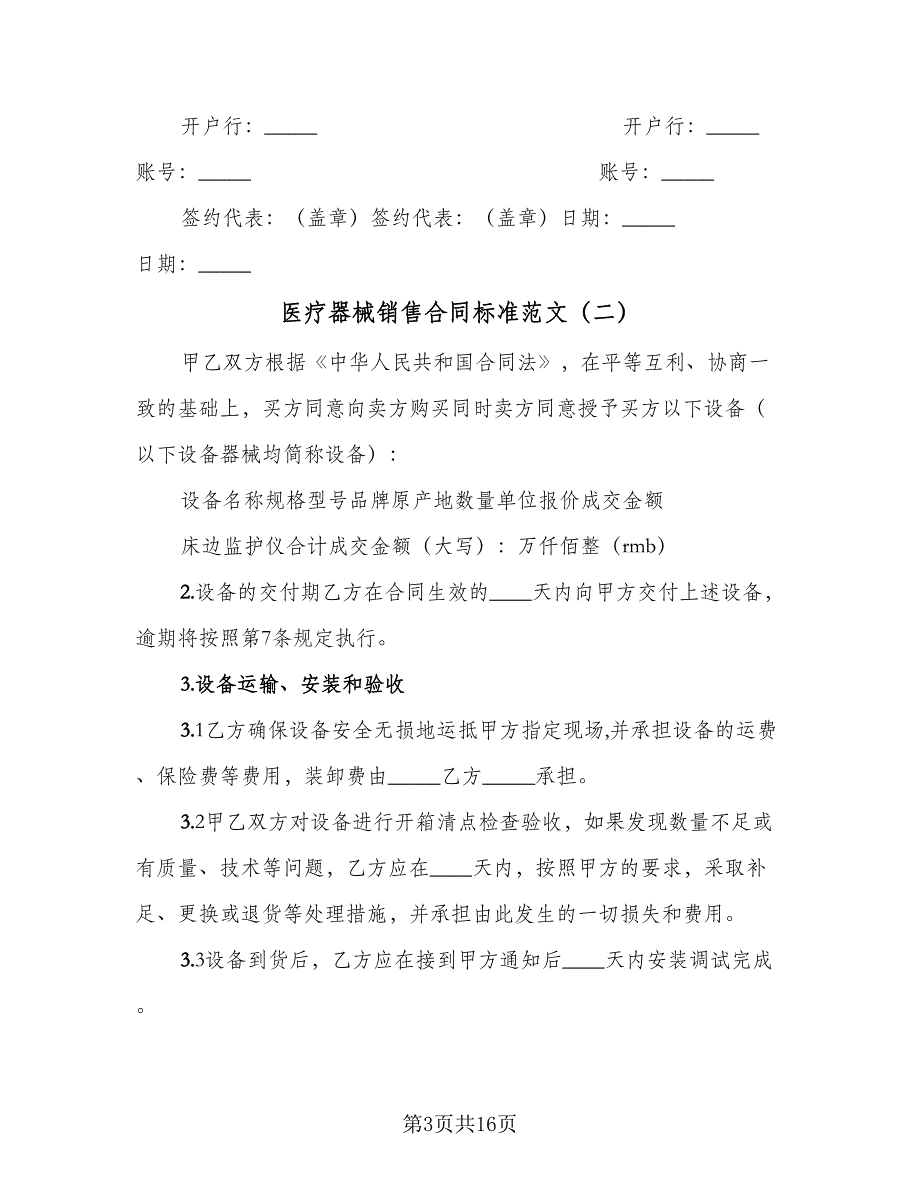 开户行：_____ 开户行：_____
账号：_____ 账号：_____
签约代表：（盖章）签约代表：（盖章）日期：_____
日期：_____
医疗器械销售合同标准范文（二）
甲乙双方根据《中华人民共和国合同法》，在平等互利、协商一
致的基础上，买方同意向卖方购买同时卖方同意授予买方以下设备（
以下设备器械均简称设备）：
设备名称规格型号品牌原产地数量单位报价成交金额
床边监护仪合计成交金额（大写）：万仟佰整（rmb）
2.设备的交付期乙方在合同生效的____天内向甲方交付上述设备，
逾期将按照第7条规定执行。
3.设备运输、安装和验收
3.1乙方确保设备安全无损地运抵甲方指定现场,并承担设备的运费
、保险费等费用，装卸费由_____乙方_____承担。
3.2甲乙双方对设备进行开箱清点检查验收，如果发现数量不足或
有质量、技术等问题，乙方应在____天内，按照甲方的要求，采取补
足、更换或退货等处理措施，并承担由此发生的一切损失和费用。
3.3设备到货后，乙方应在接到甲方通知后____天内安装调试完成
。
第3页共16页